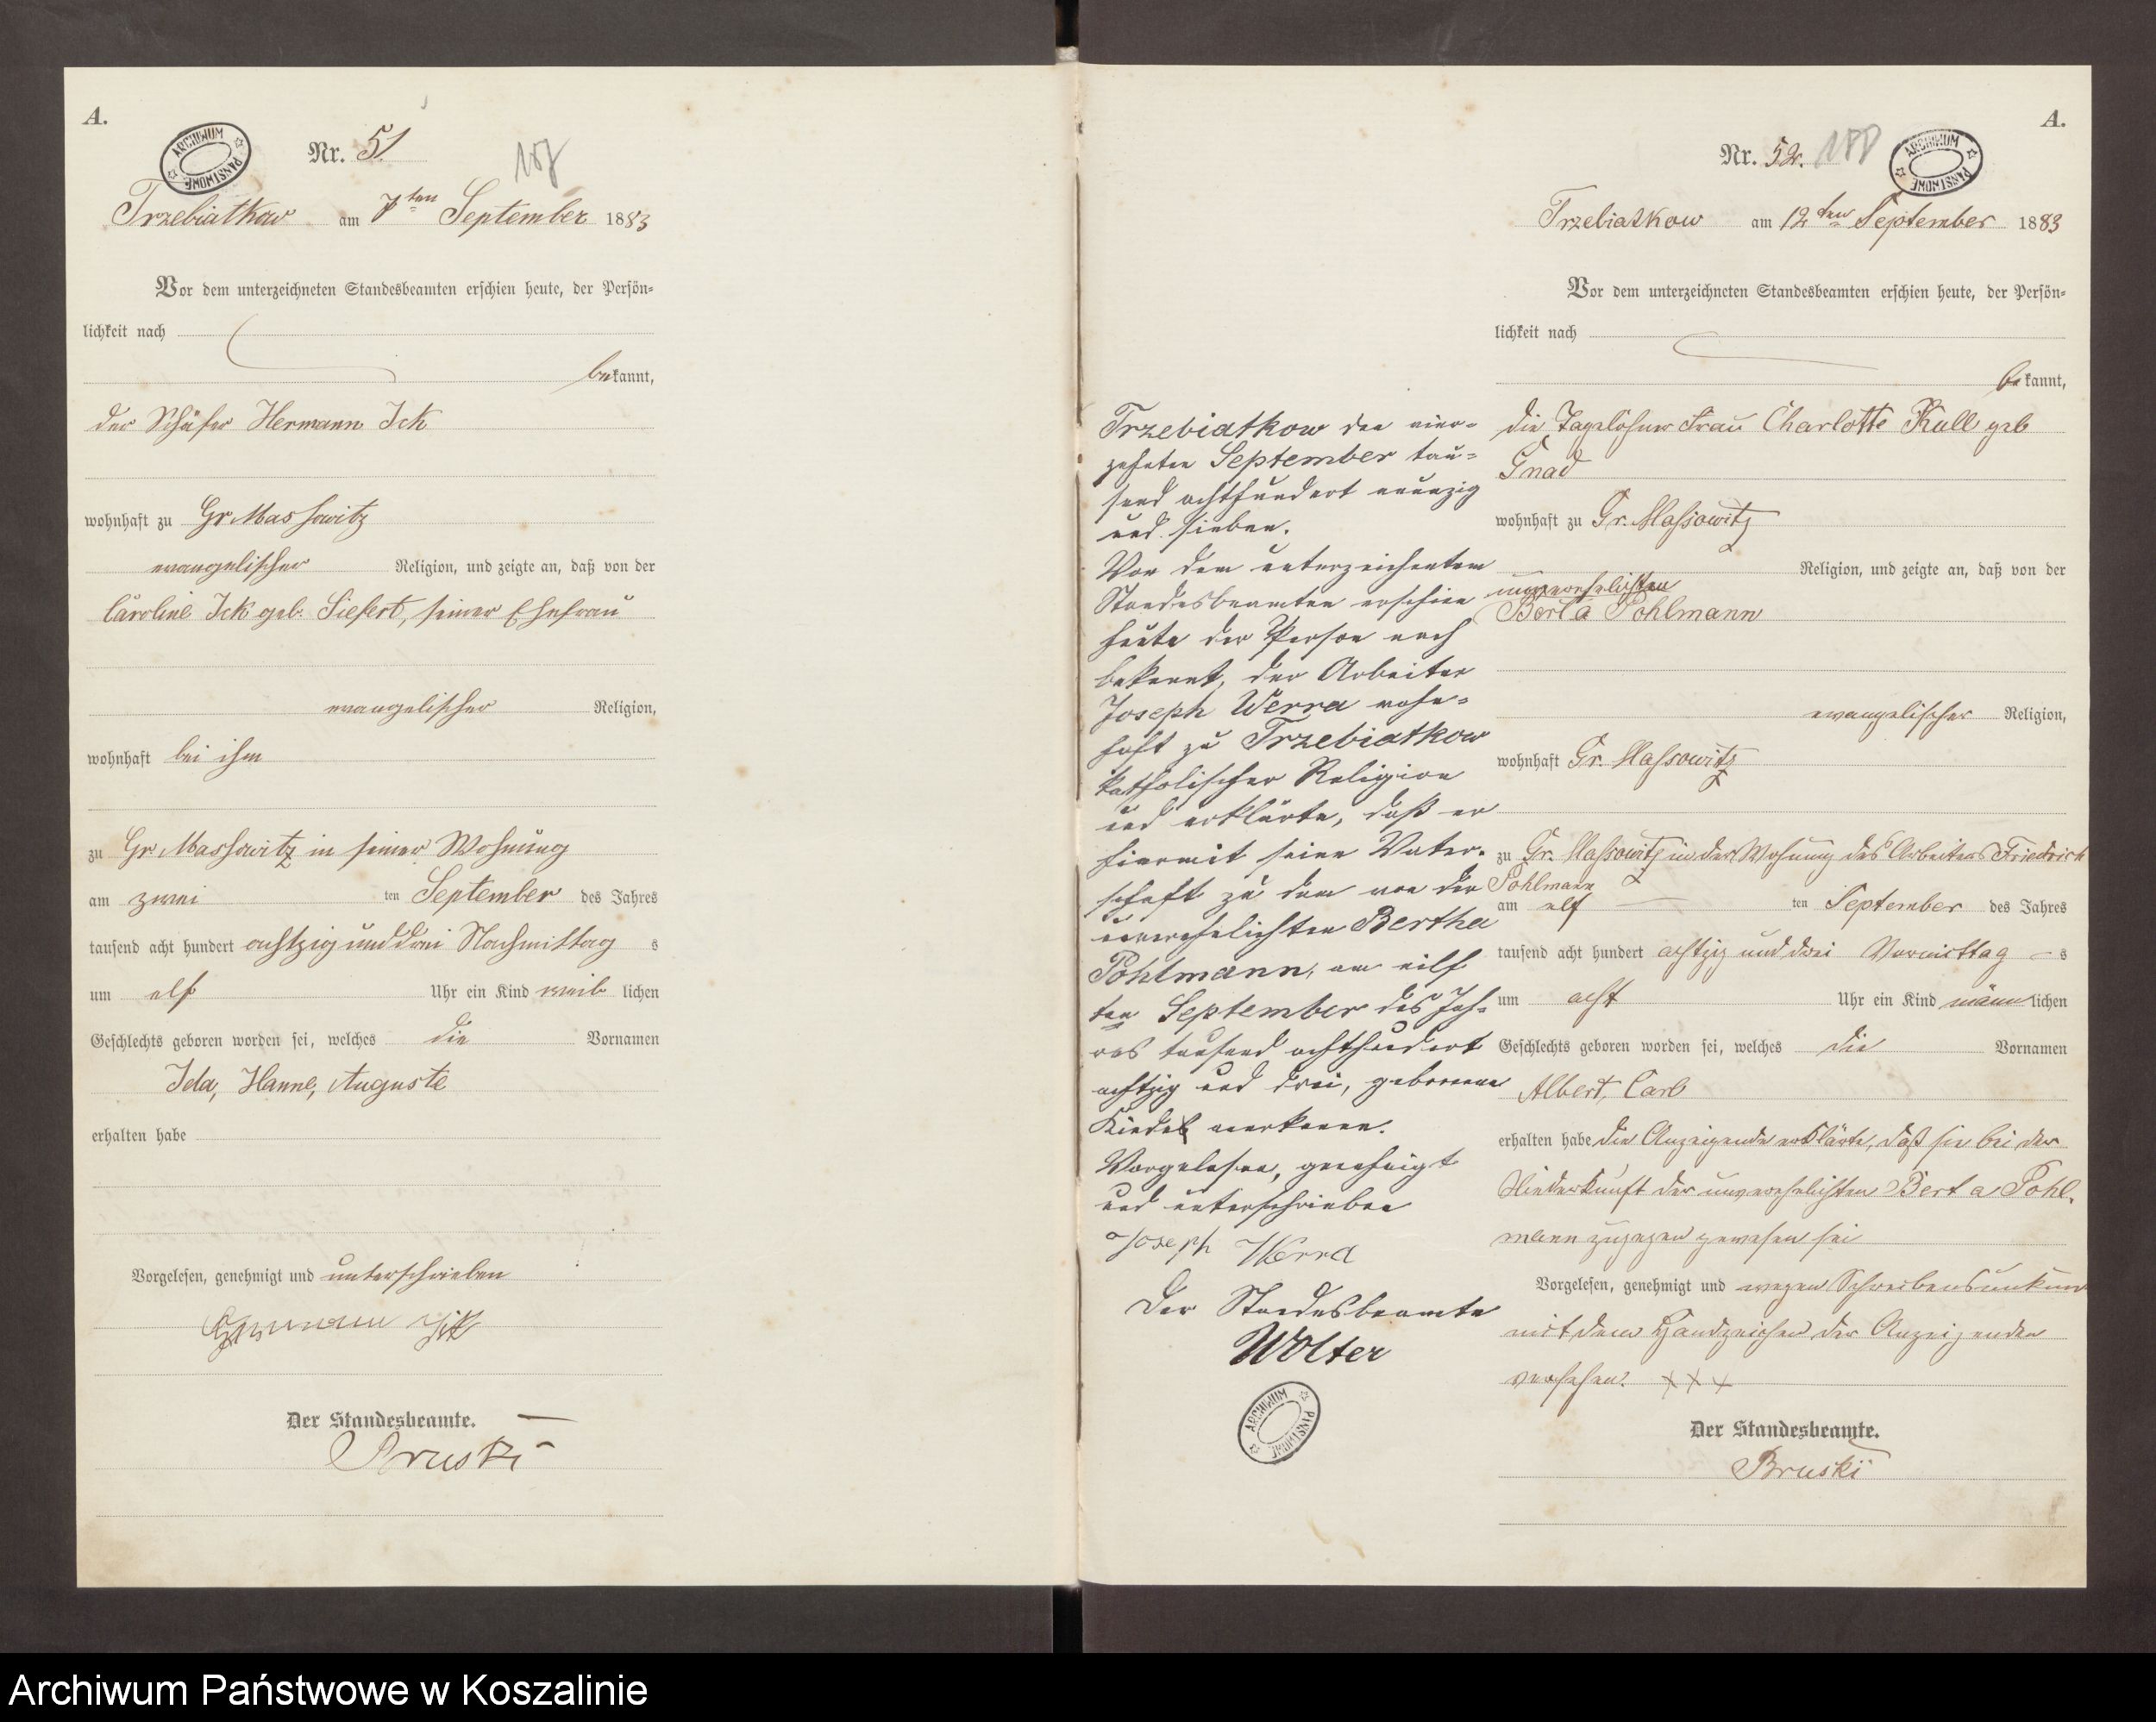 A.
ARCHIWUM PAŃSTWOWE
Nr. 51
187
Trzebiatkow am 7ten September 1883
Vor dem unterzeichneten Standesbeamten erschien heute, der Persön=
lichkeit nach
bekannt,
der Schäfer Hermann Ick
wohnhaft zu Gr Massowitz
evangelischer Religion, und zeigte an, daß von der
Caroline Ick geb. Siefert, seiner Ehefrau
evangelischer Religion,
wohnhaft bei ihm
zu Gr Massowitz in seiner Wohnung
am zwei ten September des Jahres
tausend acht hundert achtzig und drei Nachmittag s
um elf Uhr ein Kind weib lichen
Geschlechts geboren worden sei, welches die Vornamen
Ida, Hanne, Auguste
erhalten habe
Vorgelesen, genehmigt und unterschrieben
Hermann Ick
Der Standesbeamte.
Bruski
Trzebiatkow den vier=
zehnten September tau=
send achthundert neunzig
und sieben.
Vor dem unterzeichneten
Standesbeamten erschien
heute der Person nach
bekannt, der Arbeiter
Joseph Werra wohn=
haft zu Trzebiatkow
katholischer Religion
und erklärte, daß er
hiermit seine Vater=
schaft zu dem von der
unverehelichten Bertha
Pohlmann, am eilf
ten September des Jah=
res tausend achthundert
achtzig und drei, geborenen
Kinde anerkenne.
Vorgelesen, genehmigt
und unterschrieben
Joseph Werra
Der Standesbeamte
Wolter
ARCHIWUM PAŃSTWOWE
A.
Nr. 52.
188
ARCHIWUM PAŃSTWOWE
Trzebiatkow am 12ten September 1883
Vor dem unterzeichneten Standesbeamten erschien heute, der Persön=
lichkeit nach
bekannt,
die Tagelöhner Frau Charlotte Kull geb
Gnad
wohnhaft zu Gr. Massowitz
Religion, und zeigte an, daß von der
unverehelichten
Berta Pohlmann
evangelischer Religion,
wohnhaft Gr. Massowitz
zu Gr. Massowitz in der Wohnung des Arbeiters Friedrich
Pohlmann
am elf ten September des Jahres
tausend acht hundert achtzig und drei Vormittag s
um acht Uhr ein Kind männlichen
Geschlechts geboren worden sei, welches die Vornamen
Albert, Carl
erhalten habe die Anzeigende erklärte, daß sie bei der
Niederkunft der unverehelichten Berta Pohl=
mann zugegen gewesen sei
Vorgelesen, genehmigt und wegen Schreibensunkunde
mit dem Handzeichen der Anzeigenden
versehen. XXX
Der Standesbeamte.
Bruski
Archiwum Państwowe w Koszalinie